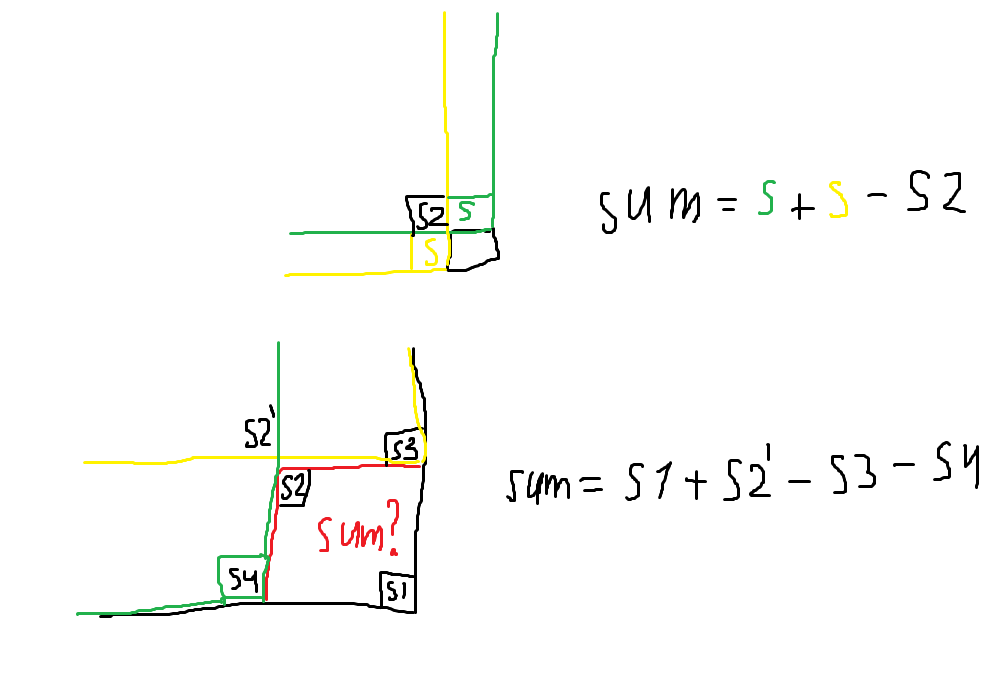 S2 S
S
sum = S + S - S2
S2'
S3
S2
sum?
S4
S1
sum = S1 + S2' - S3 - S4